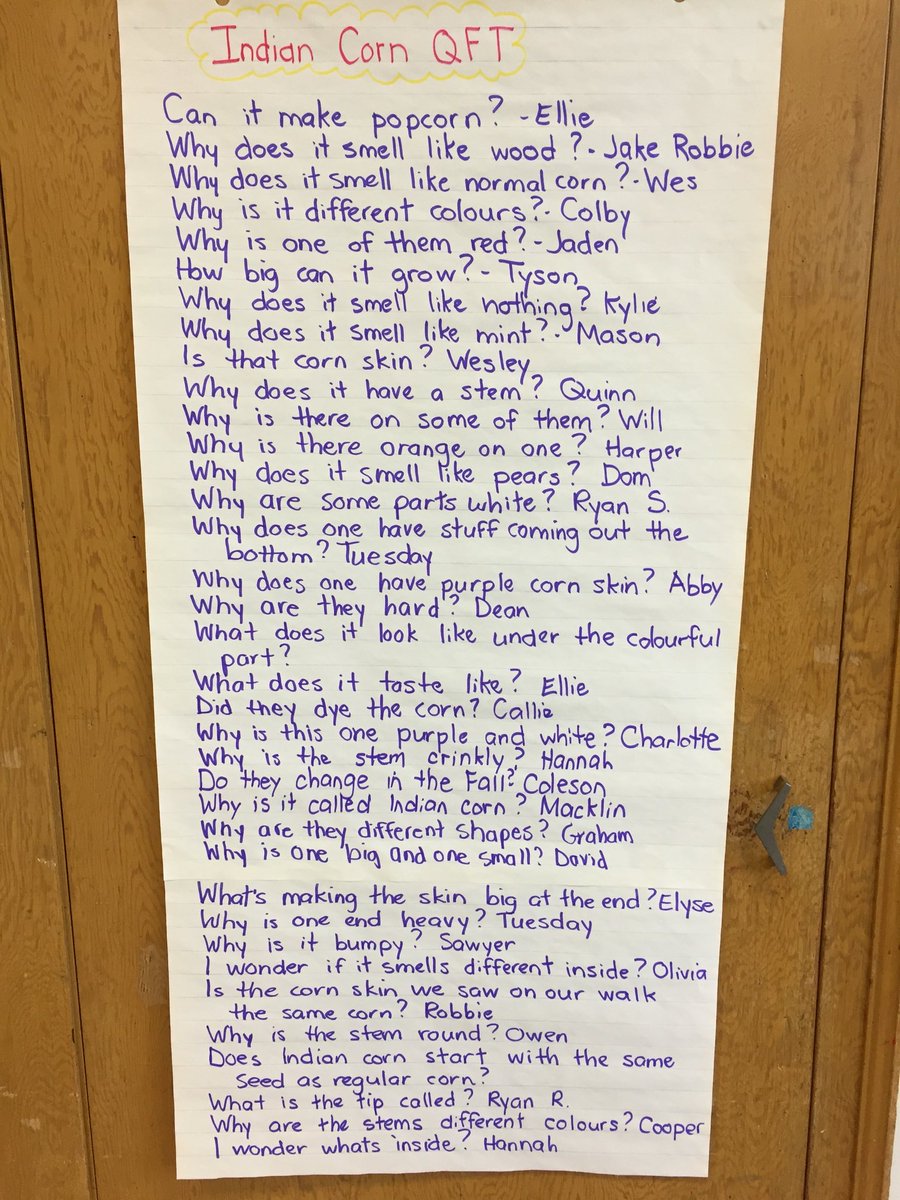 Indian Corn QFT
Can it make popcorn? - Ellie
Why does it smell like wood? - Jake Robbie
Why does it smell like normal corn? - Wes
Why is it different colours? - Colby
Why is one of them red? - Jaden
How big can it grow? - Tyson
Why does it smell like nothing? Kylie
Why does it smell like mint? - Mason
Is that corn skin? Wesley
Why does it have a stem? Quinn
Why is there on some of them? Will
Why is there orange on one? Harper
Why does it smell like pears? Dom
Why are some parts white? Ryan S.
Why does one have stuff coming out the
bottom? Tuesday
Why does one have purple corn skin? Abby
Why are they hard? Dean
What does it look like under the colourful
part?
What does it taste like? Ellie
Did they dye the corn? Callie
Why is this one purple and white? Charlotte
Why is the stem crinkly? Hannah
Do they change in the Fall? Coleson
Why is it called Indian corn? Macklin
Why are they different shapes? Graham
Why is one big and one small? David
What's making the skin big at the end? Elyse
Why is one end heavy? Tuesday
Why is it bumpy? Sawyer
I wonder if it smells different inside? Olivia
Is the corn skin we saw on our walk
the same corn? Robbie
Why is the stem round? Owen
Does Indian corn start with the same
seed as regular corn?
What is the tip called? Ryan R.
Why are the stems different colours? Cooper
I wonder whats inside? Hannah